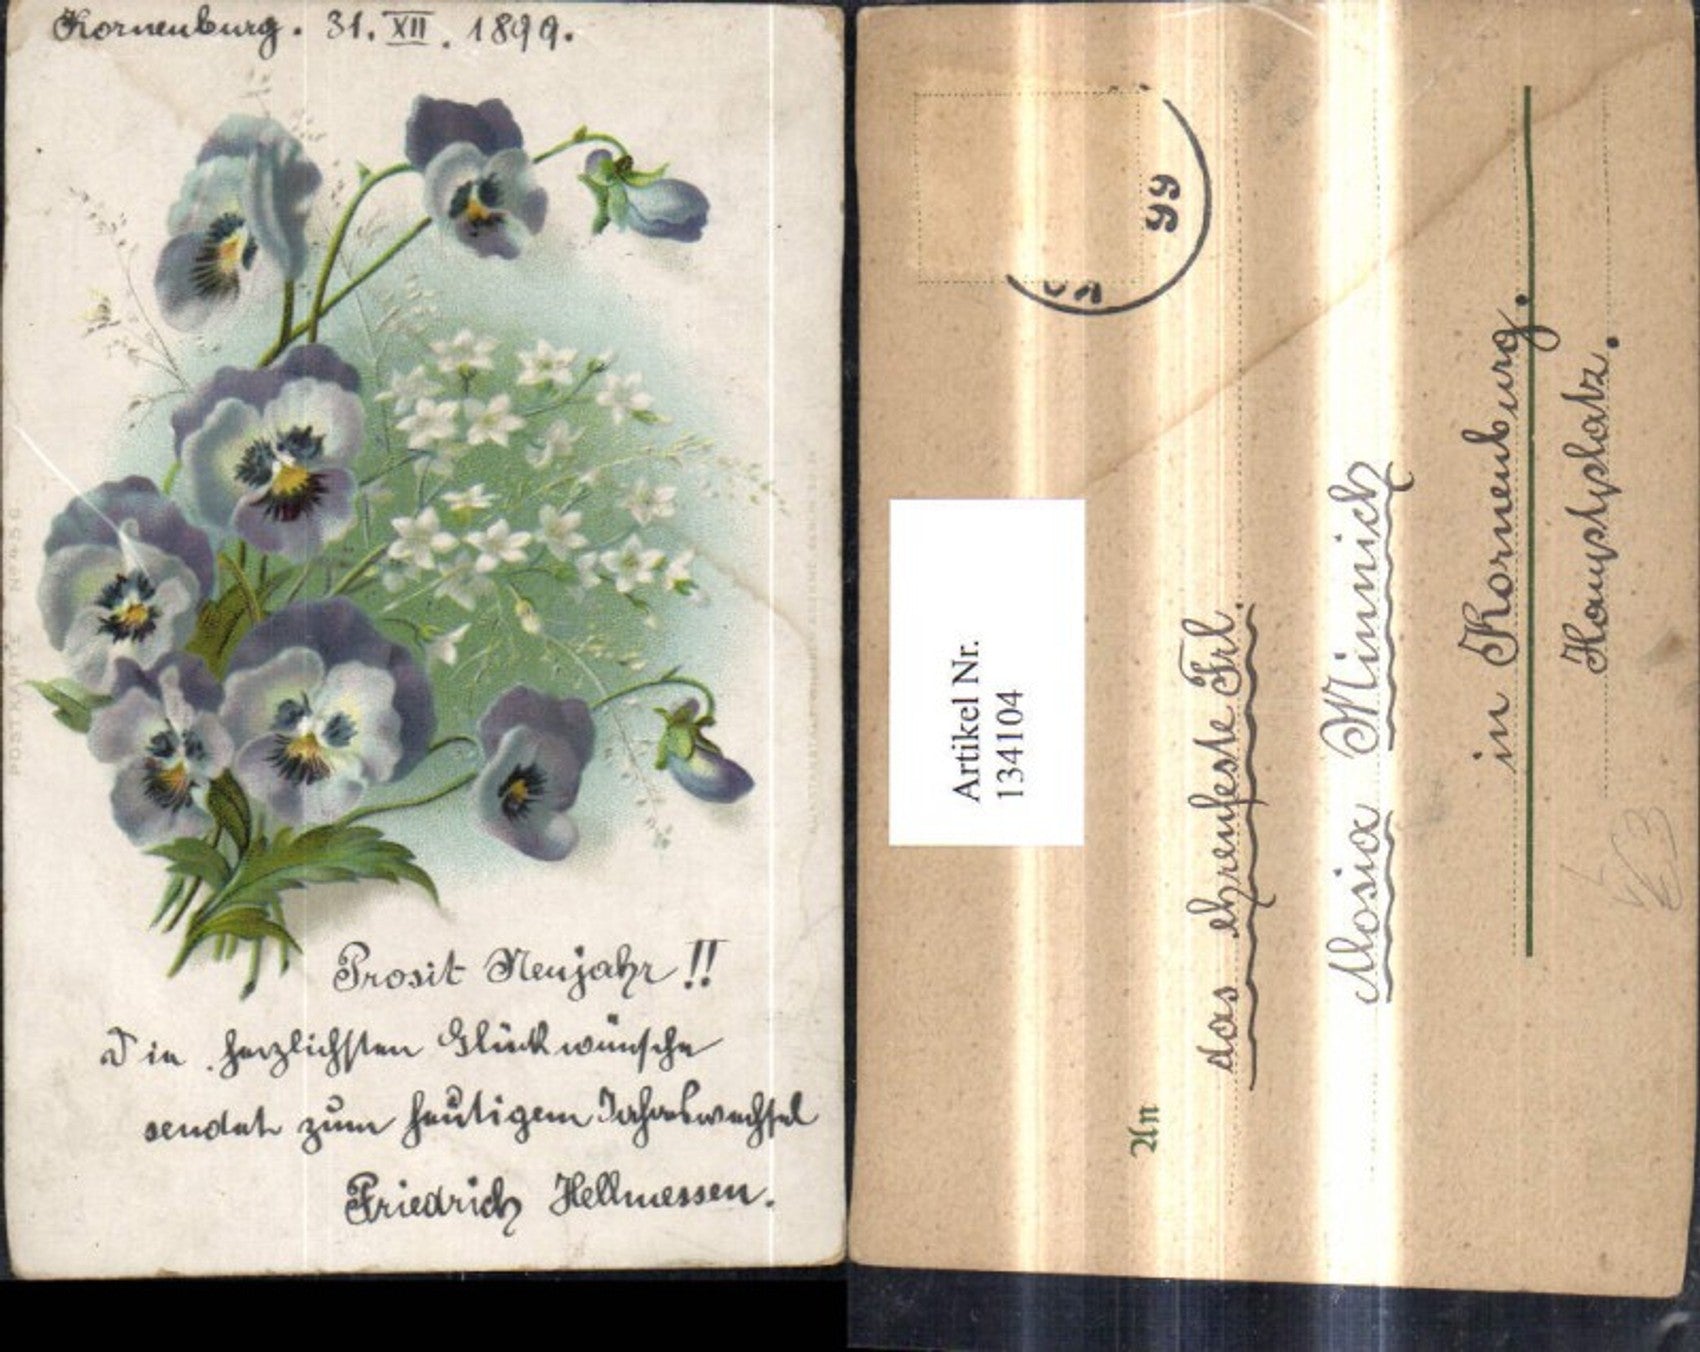 Korneuburg. 31. XII. 1899.
POSTKARTE No 456
Prosit Neujahr!!
Die herzlichsten Glückwünsche
sendet zum heutigen Jahreswechsel
Friedrich Hellmessen.
99
Artikel Nr.
1341104
An
das ehrenfeste Frl.
Minnich
in Korneuburg.
Hauptplatz.